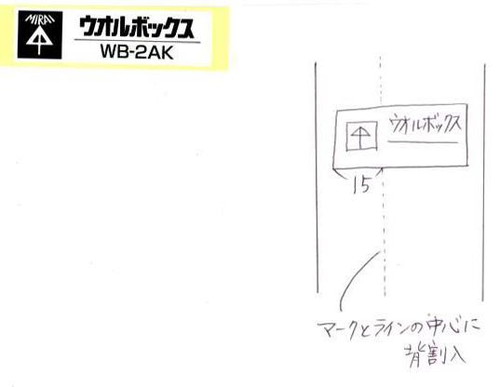 MIRAI
ウオルボックス
WB-2AK
ウオルボックス
15
マークとラインの中心に
背割入